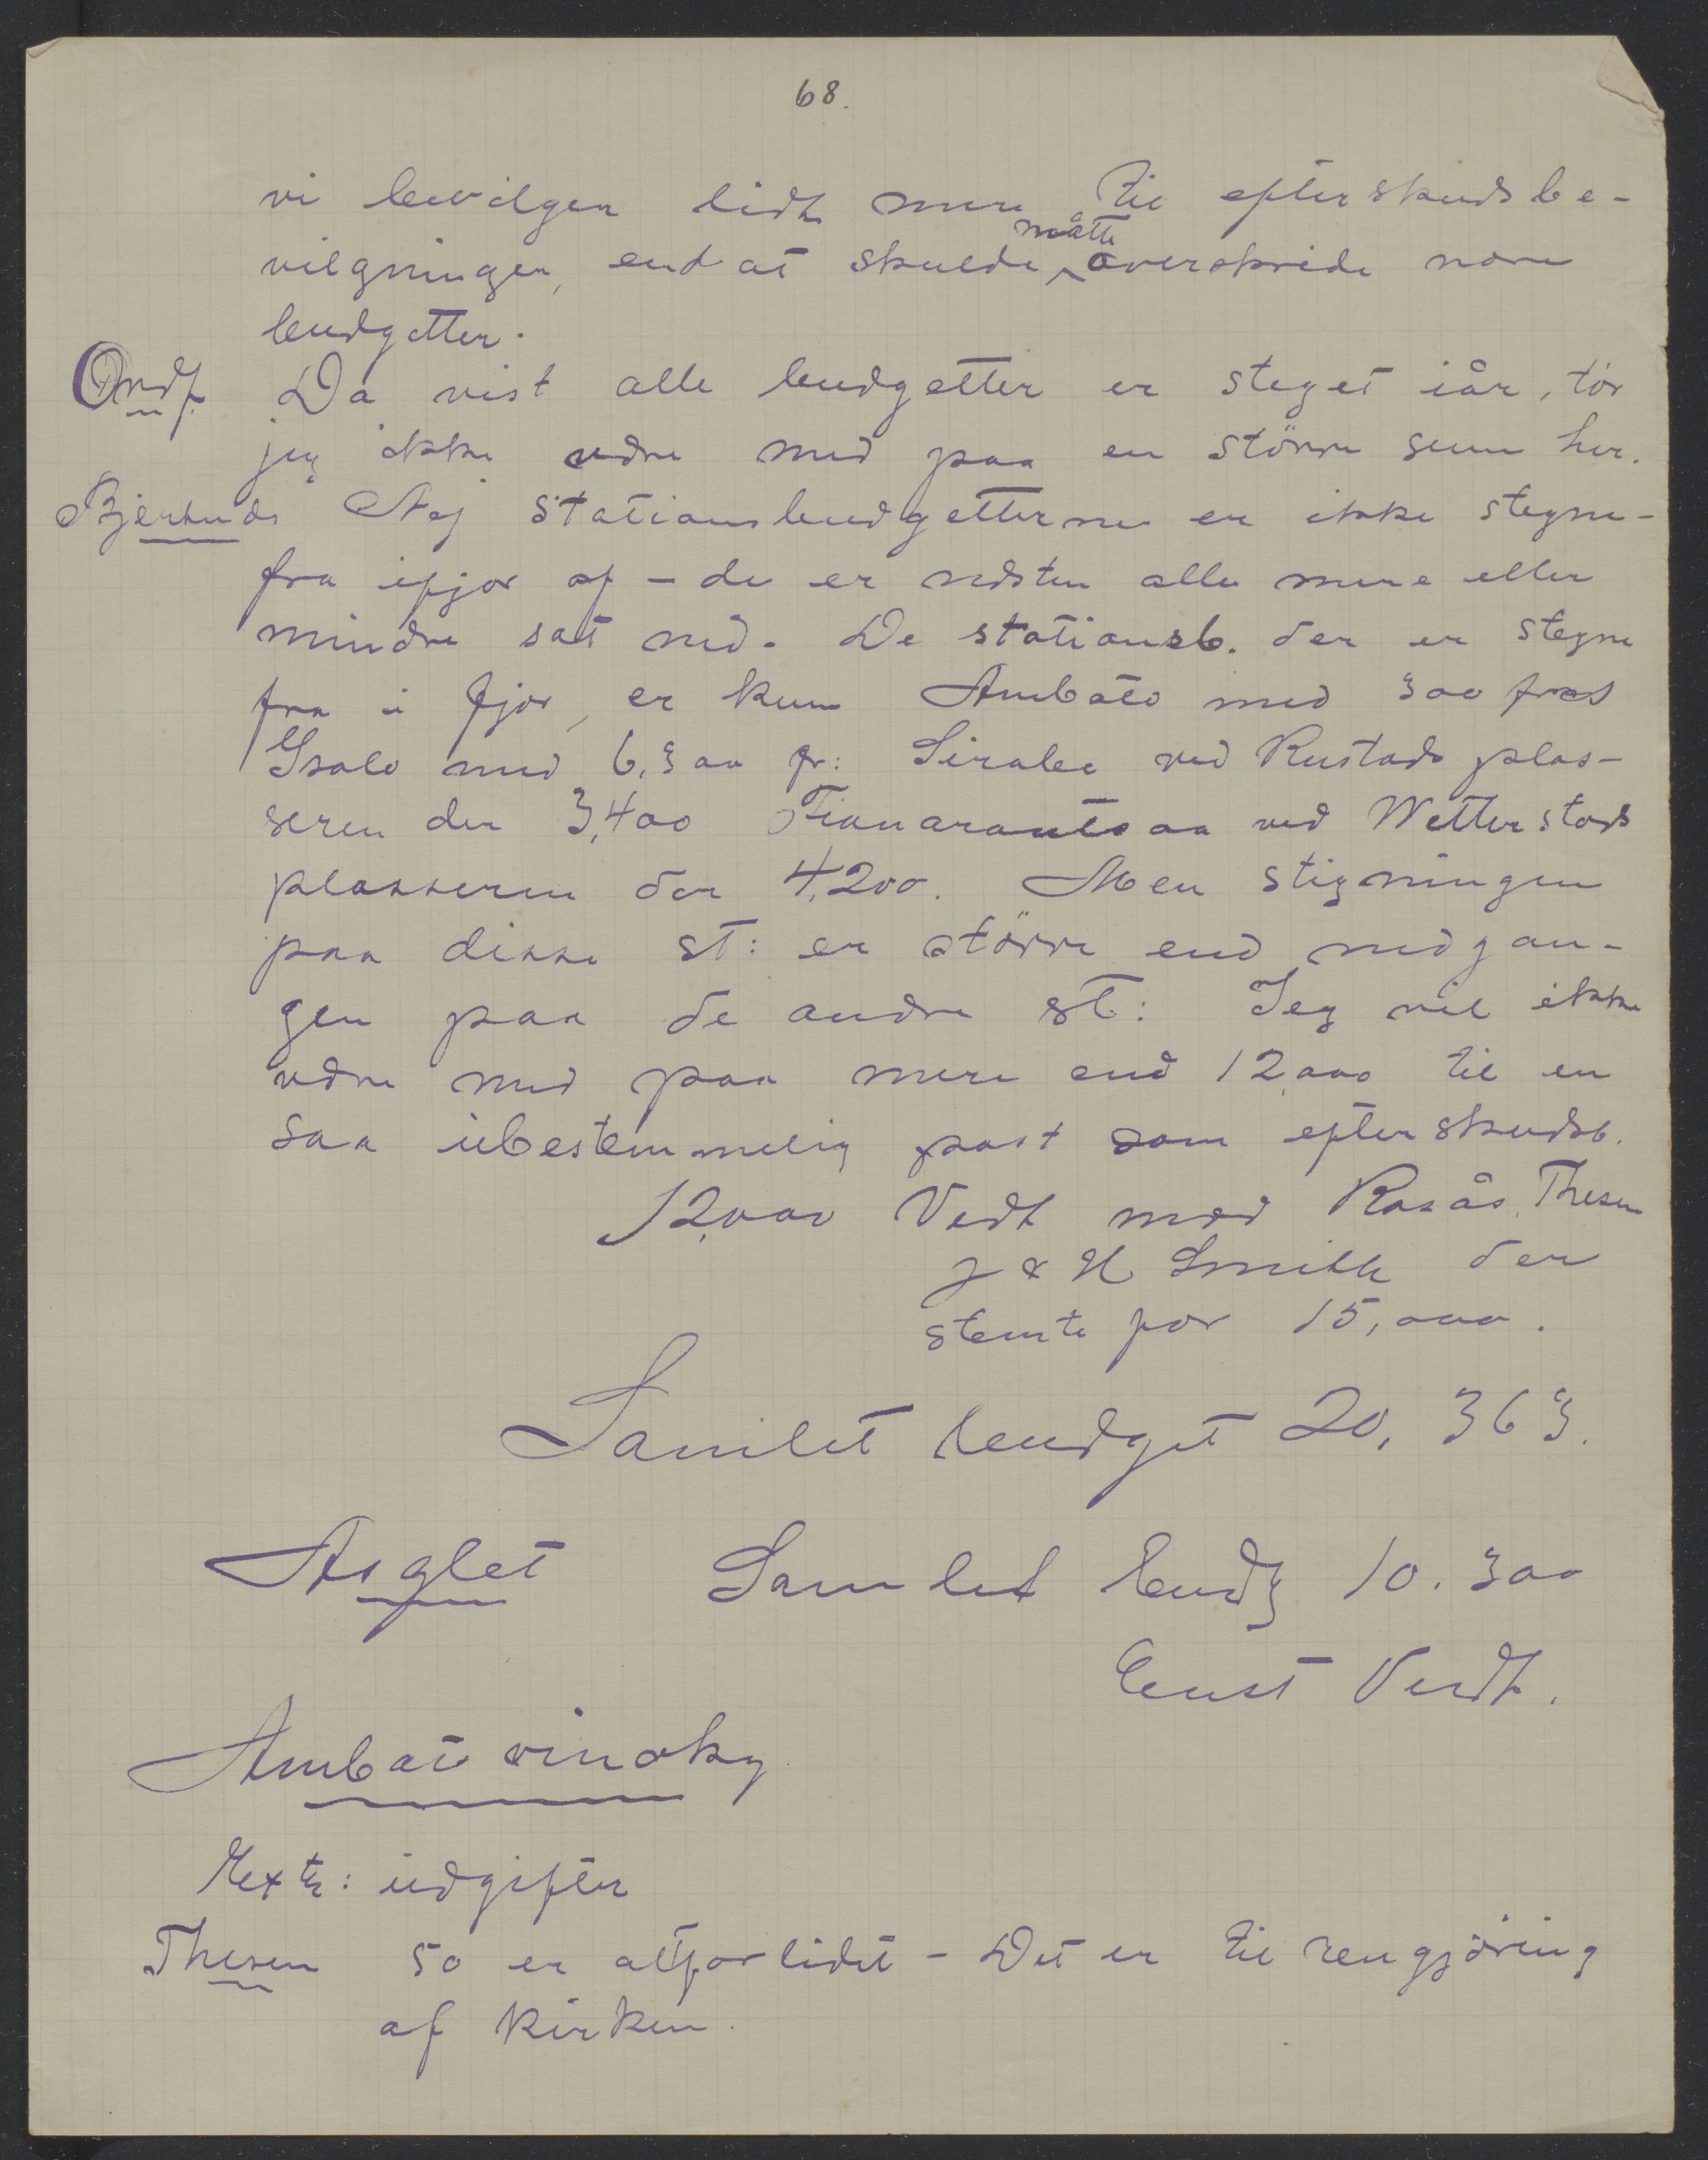 68.
vi bevilgen lidt mere til efterskudsbe-
måtte
vilgningen, end at skulde overskride vore
budgetter.
Ordf. Da vist alle budgetter er steget iår, tör
jeg ikke være med paa en större sum her.
Bjertnæs Nej stationsbudgetterne er ikke stegne-
fra ifjor af - de er næsten alle mere eller
mindre sat ned. De stationsb. der er stegne
fra i fjor, er kun Ambato med 300 frcs
Isalo med 6,300 fr: Sirabe ved Rustads plas-
seren der 3,400 Fianarantsoa ved Wetterstads
plasseren der 4,200. Men stigningen
paa disse st: er större end nedgan-
gen paa de andre st: Jeg vil ikke
være med paa mere end 12,000 til en
saa ubestemmelig post som efterskudsb.
12,000 Vedt mod Rosås, Thesen
J & H Smith der
stemte for 15,000.
Samlet budget 20,363.
Asylet Samlet budg 10.300
Enst Vedt.
Ambatovinaky
Extr: udgifter
Thesen 50 er altfor lidet - Det er til rengjöring
af kirken.